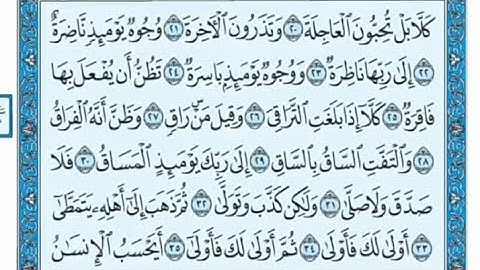 كَلَّا بَلْ تُحِبُّونَ الْعَاجِلَةَ ٢٠ وَتَذَرُونَ الْآخِرَةَ ٢١ وُجُوهٌ يَوْمَئِذٍ نَاضِرَةٌ
٢٢ إِلَى رَبِّهَا نَاظِرَةٌ ٢٣ وَوُجُوهٌ يَوْمَئِذٍ بَاسِرَةٌ ٢٤ تَظُنُّ أَنْ يُفْعَلَ بِهَا
فَاقِرَةٌ ٢٥ كَلَّا إِذَا بَلَغَتِ التَّرَاقِيَ ٢٦ وَقِيلَ مَنْ رَاقٍ ٢٧ وَظَنَّ أَنَّهُ الْفِرَاقُ
٢٨ وَالْتَفَّتِ السَّاقُ بِالسَّاقِ ٢٩ إِلَى رَبِّكَ يَوْمَئِذٍ الْمَسَاقُ ٣٠ فَلَا
صَدَّقَ وَلَا صَلَّى ٣١ وَلَكِنْ كَذَّبَ وَتَوَلَّى ٣٢ ثُمَّ ذَهَبَ إِلَى أَهْلِهِ يَتَمَطَّى
٣٣ أَوْلَى لَكَ فَأَوْلَى ٣٤ ثُمَّ أَوْلَى لَكَ فَأَوْلَى ٣٥ أَيَحْسَبُ الْإِنْسَانُ